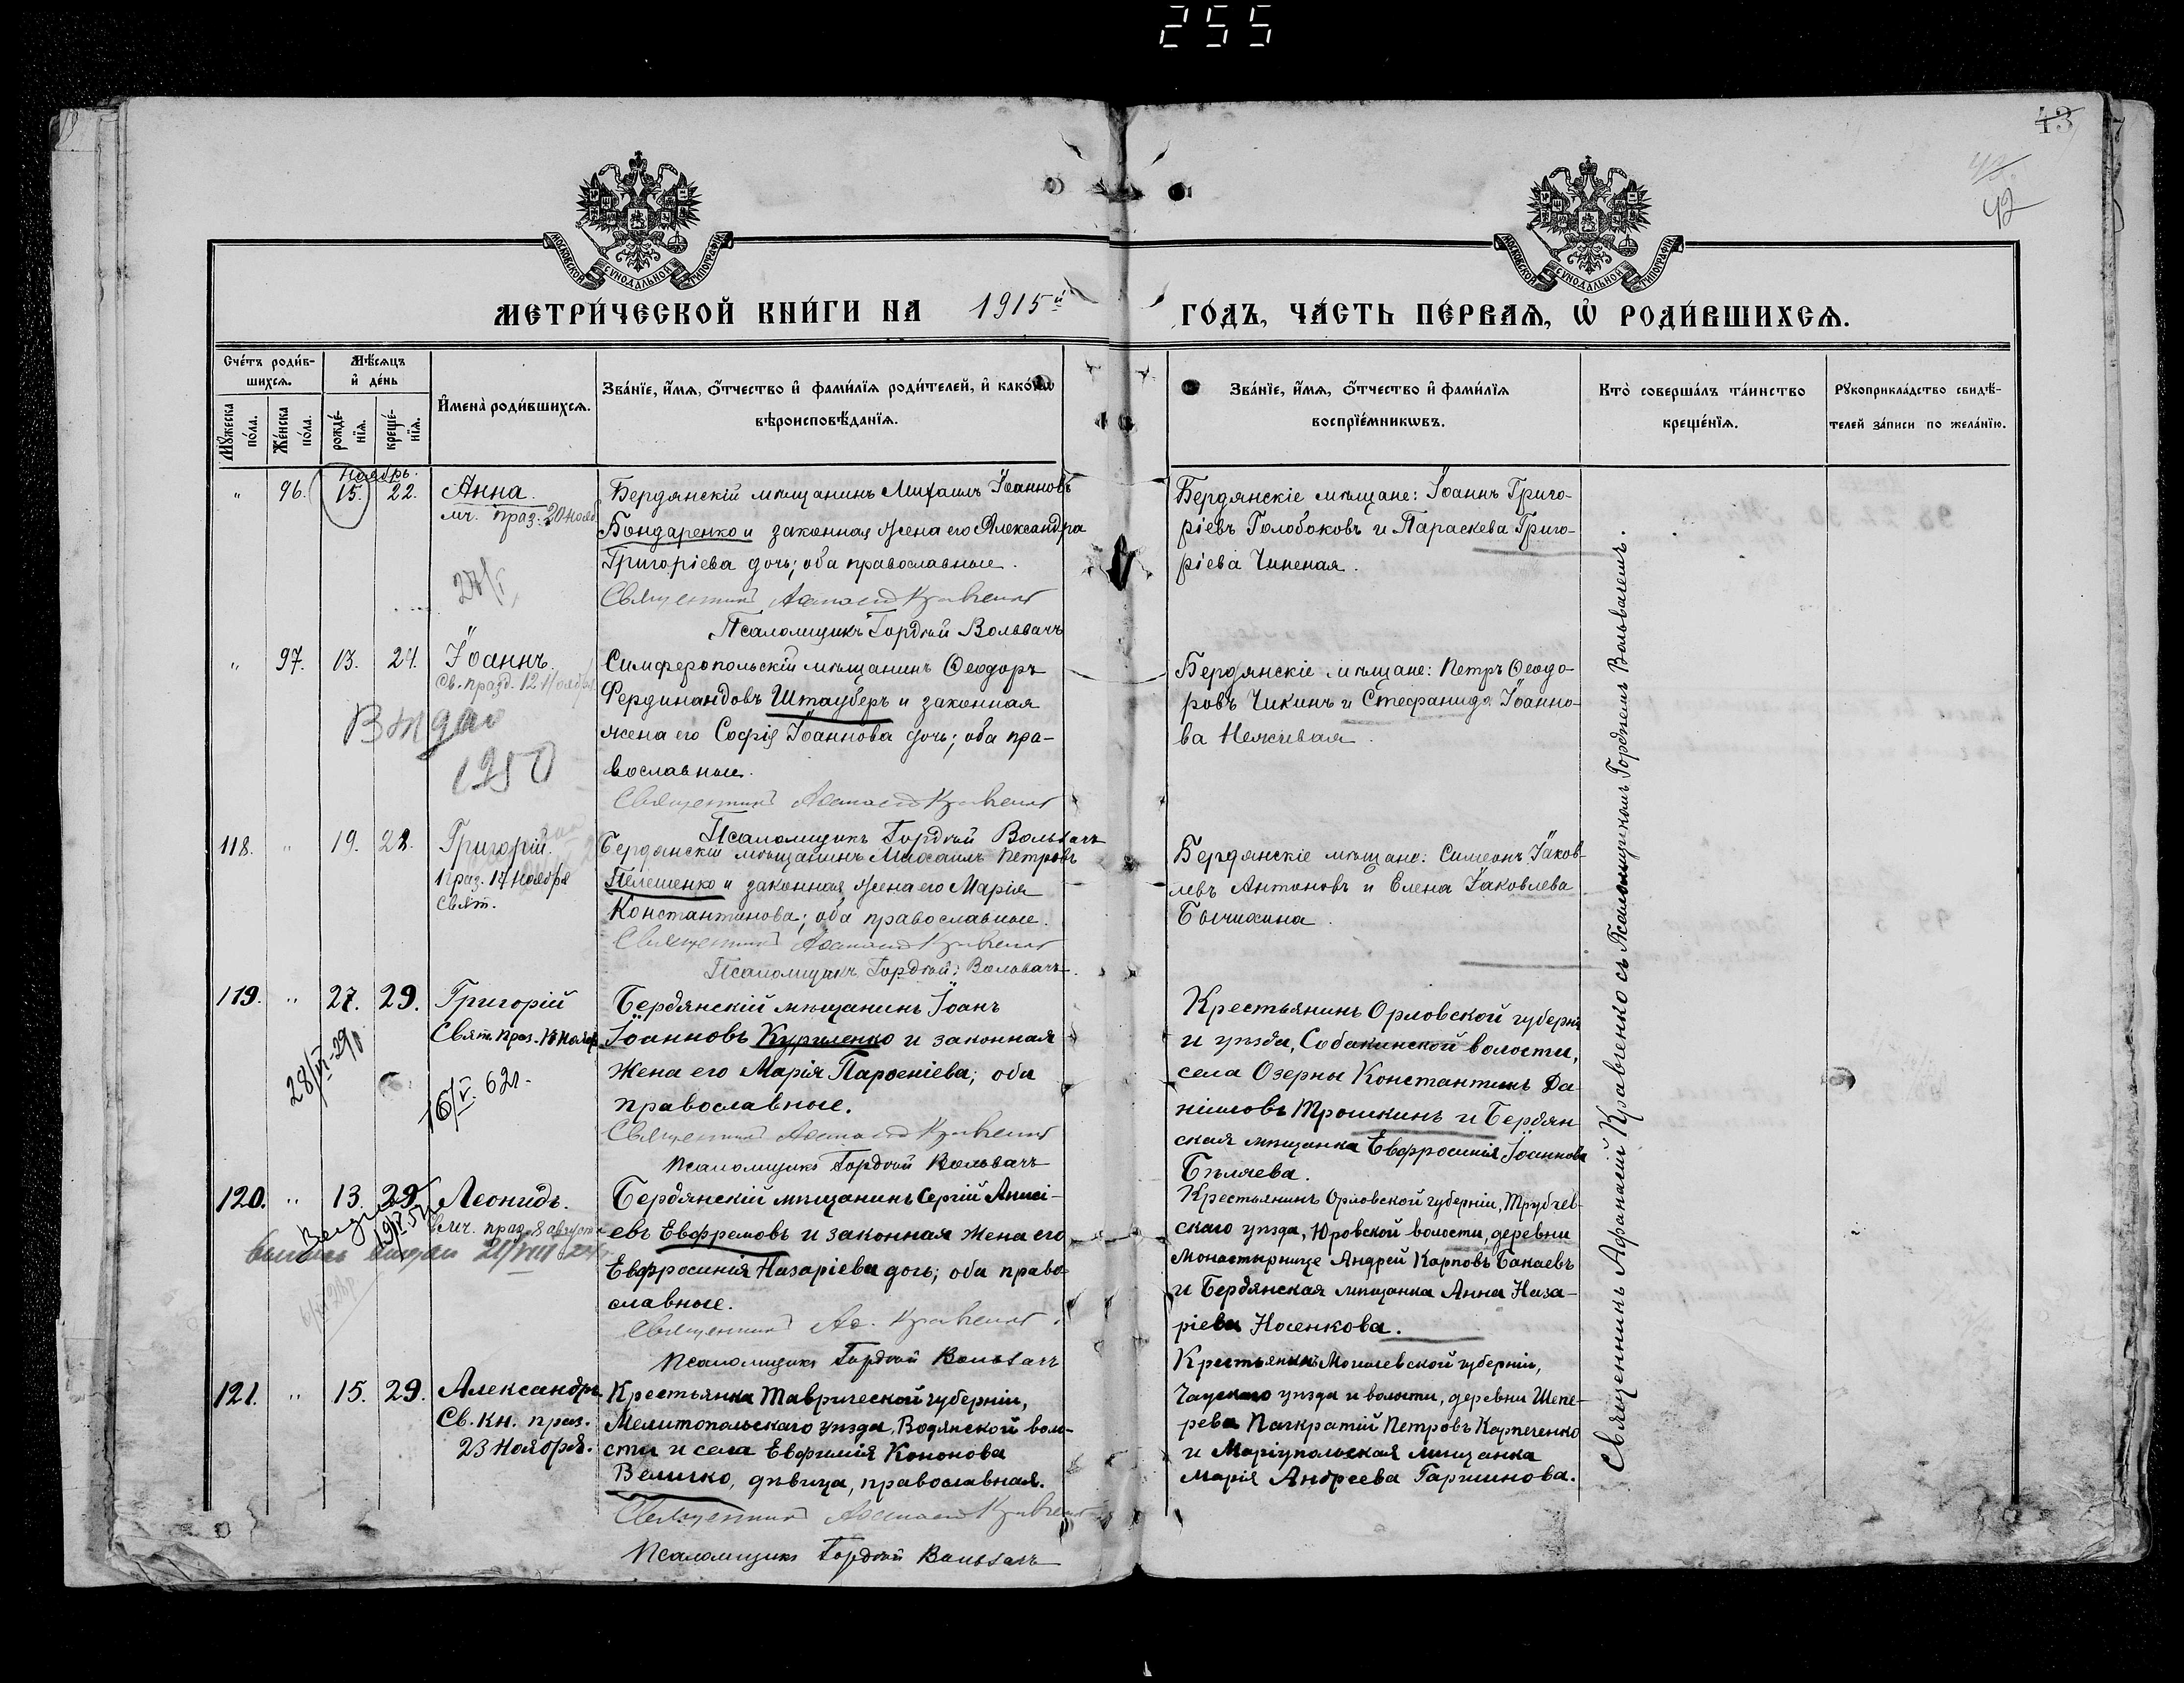 255
43
42
МОСКОВСКОЙ СѴНОДАЛЬНОЙ ТИПОГРАФІИ
МОСКОВСКОЙ СѴНОДАЛЬНОЙ ТИПОГРАФІИ
МЕТРИ́ЧЕСКОЙ КНИ́ГИ НА 1915й ГО́ДЪ, ЧА́СТЬ ПЕ́РВАѦ, Ѡ҆ РОДИ́ВШИХСѦ.
Сче́тъ роди́в-
шихсѧ.
Мꙋ́жеска по́ла.
Же́нска по́ла.
Мѣ́сѧцъ
и҆ де́нь
рожде́-
нїѧ.
креще́-
нїѧ.
И҆мена̀ роди́вшихсѧ.
Зва́нїе, и҆́мѧ, ѻ҆́тчество и҆ фами́лїѧ роди́телей, и҆ како́гѡ
вѣроисповѣ́данїѧ.
Зва́нїе, и҆́мѧ, ѻ҆́тчество и҆ фами́лїѧ
воспрїе́мникѡвъ.
Кто̀ соверша́лъ та́инство
креще́нїѧ.
Рꙋкоприкла́дство свидѣ́-
телей за́писи по жела́нїю.
Ноябрь.
" 96. 15. 22. Анна.
мч. праз. 20 нояб.
Бердянскій мѣщанинъ Михаилъ Іоанновъ
Бондаренко и законная жена его Александра
Григоріева дочь; оба православные.
Священникъ Афанасій Кравченко
Псаломщикъ Гордѣй Вольвачъ
Бердянскіе мѣщане: Іоаннъ Григо-
ріевъ Голобоковъ и Параскева Григо-
ріева Чиненая.
" 97. 13. 24. Іоаннъ.
Св. празд. 12 Ноября
Выдано
1950
Симферопольскій мѣщанинъ Ѳеодоръ
Фердинандовъ Штауберъ и законная
жена его Софія Іоаннова дочь; оба пра-
вославные.
Священникъ Афанасій Кравченко
Псаломщикъ Гордѣй Вольвачъ
Бердянскіе мѣщане: Петръ Ѳеодо-
ровъ Чикинъ и Стефанида Іоанно-
ва Неживая.
118. " 19. 28. Григорій.
праз. 17 Ноября
Свят.
Бердянскій мѣщанинъ Михаилъ Петровъ
Пелешенко и законная жена его Марія
Константинова; оба православные.
Священникъ Афанасій Кравченко
Псаломщикъ Гордѣй Вольвачъ.
Бердянскіе мѣщане: Симеонъ Іаков-
левъ Антоновъ и Елена Іаковлева
Бычихина.
119. " 27. 29. Григорій
Свят. праз. 17 Нояб.
28/VI-29
16/V. 62г.
Бердянскій мѣщанинъ Іоанъ
Іоанновъ Куриленко и законная
жена его Марія Парѳеніева; оба
православные.
Священникъ Афанасій Кравченко
Псаломщикъ Гордѣй Вольвачъ
Крестьянинъ Орловской губерніи
и уѣзда, Собакинской волости,
села Озерны Константинъ Да-
ніиловъ Трошкинъ и Бердян
ская мѣщанка Евфросинія Іоаннова
Бѣляева.
120. " 13. 29. Леонидъ.
мч. праз. 8 августа
Бердянскій мѣщанинъ Сергій Аниси-
евъ Евфремовъ и законная жена его
Евфросинія Назаріева дочь; оба право-
славные.
Священникъ Аф. Кравченко.
Псаломщикъ Гордѣй Вольвачъ
Крестьянинъ Орловской губерніи, Трубчев-
скаго уѣзда, Юровской волости, деревни
Монастырище Андрей Карповъ Бакаевъ
и Бердянская мѣщанка Анна Наза-
ріева Носенкова.
121. " 15. 29. Александръ.
Св. Кн. праз.
23 Ноября.
Крестьянка Таврической губерніи,
Мелитопольскаго уѣзда, Водянской воло-
сти и села Евфимія Кононова
Величко, дѣвица, православная.
Священникъ Афанасій Кравченко
Псаломщикъ Гордѣй Вольвачъ
Крестьянинъ Могилевской губерніи,
Чаускаго уѣзда и волости, деревни Шепе-
рева Панкратій Петровъ Карпеченко
и Маріупольская мѣщанка
Марія Андреева Гаршинова.
Священникъ Афанасій Кравченко съ Псаломщикомъ Гордѣемъ Вольвачемъ.